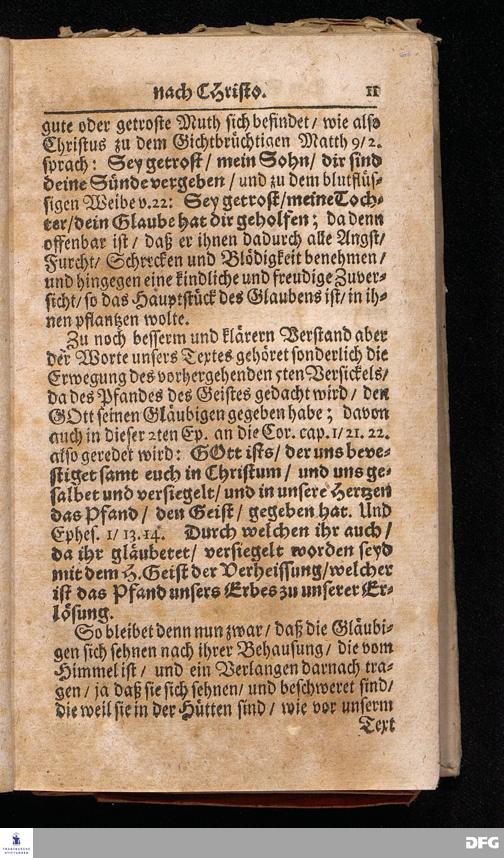 nach CHristo. 11
gute oder getroste Muth sich befindet / wie also
Christus zu dem Gichtbrüchtigen Matth 9/2.
sprach: Sey getrost / mein Sohn / dir sind
deine Sünde vergeben / und zu dem blutflüs-
sigen Weibe v.22: Sey getrost / meine Toch-
ter / dein Glaube hat dir geholfen; da denn
offenbar ist / daß er ihnen dadurch alle Angst /
Furcht / Schrecken und Blödigkeit benehmen /
und hingegen eine kindliche und freudige Zuver-
sicht / so das Hauptstück des Glaubens ist / in ih-
nen pflantzen wolte.
Zu noch besserm und klärern Verstand aber
der Worte unsers Textes gehöret sonderlich die
Erwegung des vorhergehenden 5ten Versickels /
da des Pfandes des Geistes gedacht wird / den
GOtt seinen Gläubigen gegeben habe; davon
auch in dieser 2ten Ep. an die Cor. cap. 1/21. 22.
also geredet wird: GOtt ists / der uns beve-
stiget samt euch in Christum / und uns ge-
salbet und versiegelt / und in unsere Hertzen
das Pfand / den Geist / gegeben hat. Und
Ephes. 1/13.14. Durch welchen ihr auch /
da ihr gläubetet / versiegelt worden seyd
mit dem H. Geist der Verheissung / welcher
ist das Pfand unsers Erbes zu unserer Er-
lösung.
So bleibet denn nun zwar / daß die Gläubi-
gen sich sehnen nach ihrer Behausung / die vom
Himmel ist / und ein Verlangen darnach tra-
gen / ja daß sie sich sehnen / und beschweret sind /
die weil sie in der Hütten sind / wie vor unserm
Text
FRANCKESCHE
STIFTUNGEN
DFG